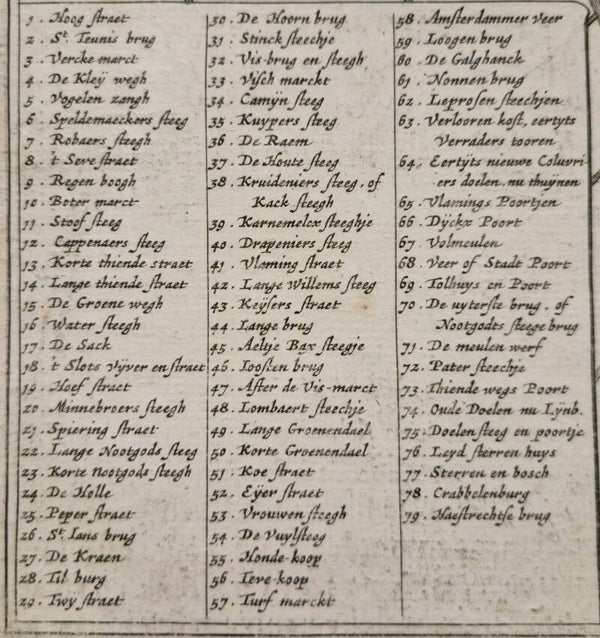 1. Hoog straet
2. St. Teunis brug
3. Vercke marct
4. De Kleÿ wegh
5. Vogelen zangh
6. Speldemaeckers steeg
7. Robaers steegh
8. 't Seve straet
9. Regen boogh
10. Boter marct
11. Stoof steeg
12. Cappenaers steeg
13. Korte thiende straet
14. Lange thiende straet
15. De Groene wegh
16. Water steegh
17. De Sack
18. 't Slots Vÿver en straet
19. Hoef straet
20. Minnebroers steegh
21. Spiering straet
22. Lange Nootgods steeg
23. Korte Nootgods steegh
24. De Holle
25. Peper straet
26. St. Ians brug
27. De Kraen
28. Til burg
29. Twy straet
30. De Hoorn brug
31. Stinck steechje
32. Vis-brug en steegh
33. Visch marckt
34. Camÿn steeg
35. Kuypers steeg
36. De Raem
37. De Houte steeg
38. Kruideniers steeg, of
Kack steegh
39. Karnemelcx steeghje
40. Drapeniers steeg
41. Vlaming straet
42. Lange Willems steeg
43. Keÿsers straet
44. Lange brug
45. Aeltje Bax steegje
46. Ioosten brug
47. After de Vis-marct
48. Lombaert steechje
49. Lange Groenendael
50. Korte Groenendael
51. Koe straet
52. Eÿer straet
53. Vrouwen steegh
54. De Vuylsteeg
55. Honde-koop
56. Ieve-koop
57. Turf marckt
58. Amsterdammer veer
59. Loogen brug
60. De Galghanck
61. Nonnen brug
62. Leprosen steechjen
63. Verlooren kost, eertyts
Verraders tooren
64. Eertÿts nieuwe Coluvri-
ers doelen nu thuÿnen
65. Vlamings Poortjen
66. Dÿckx Poort
67. Volmeulen
68. Veer of Stadt Poort
69. Tolhuys en Poort
70. De uyterste brug, of
Nootgodts steege brug
71. De meulen werf
72. Pater steechje
73. Thiende wegs Poort
74. Oude Doelen nu Lÿnb.
75. Doelen steeg en poortje
76. Leyd sterren huys
77. Sterren en bosch
78. Crabbelenburg
79. Haestrechtse brug